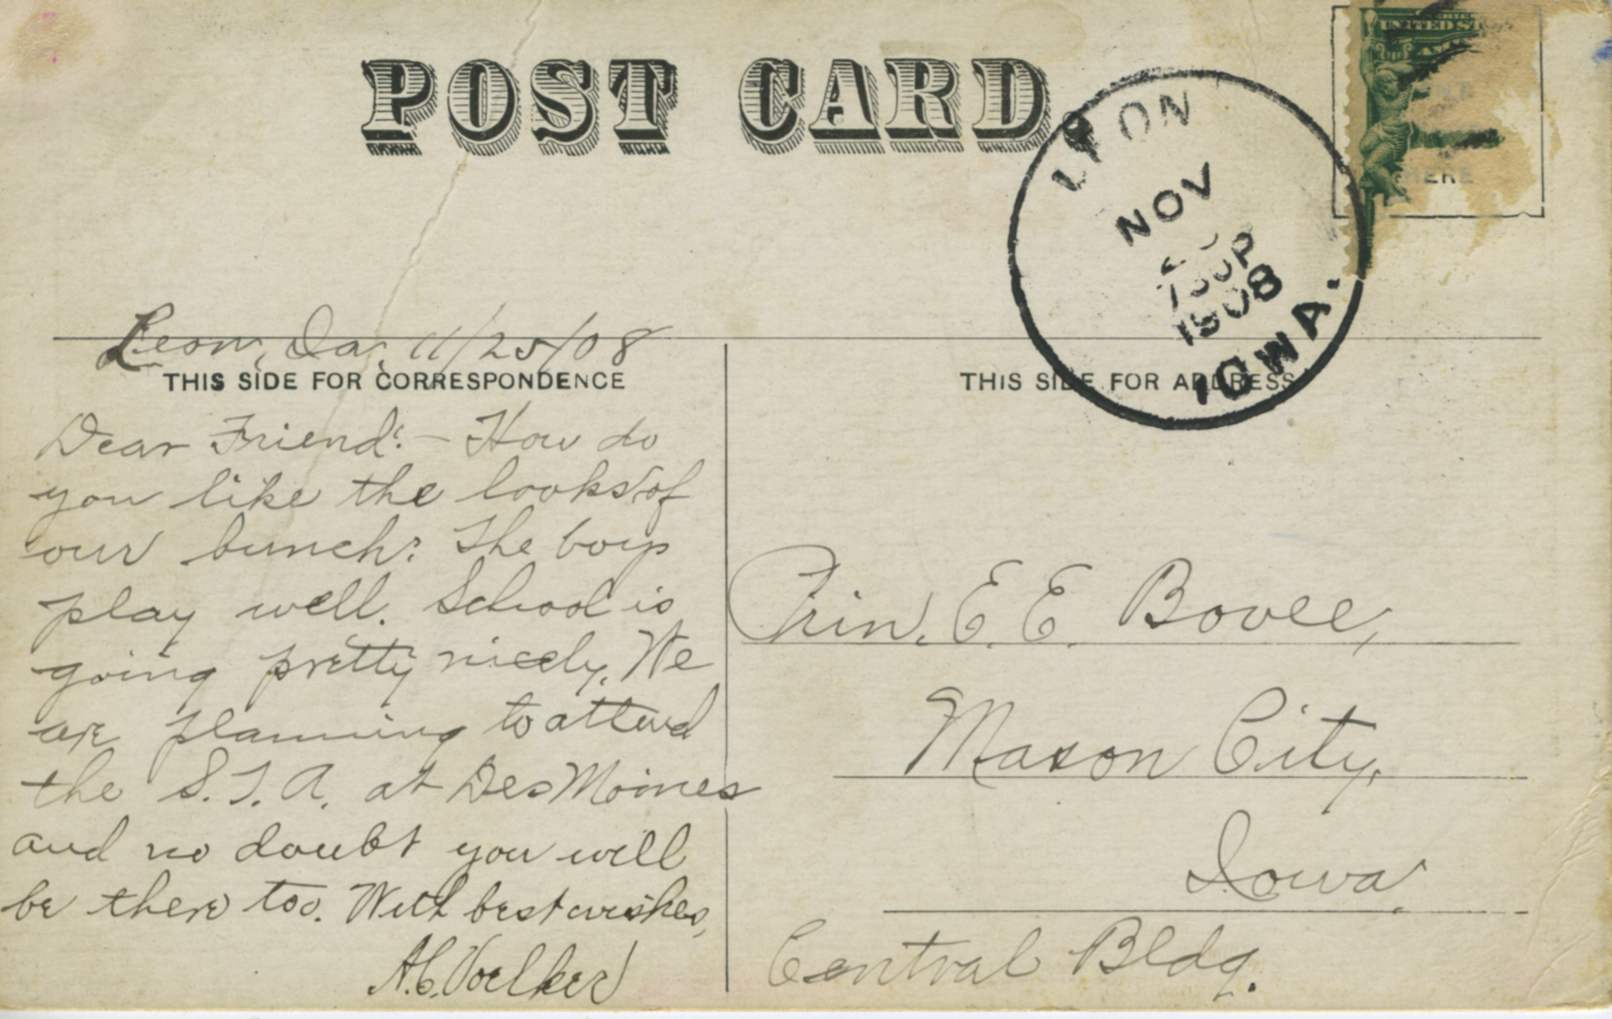 POST CARD
UNITED ST
AM
HERE
LEON
NOV
730P
1908
IOWA.
Leon, Ia. 11/25/08
THIS SIDE FOR CORRESPONDENCE
THIS SIDE FOR ADDRESS
Dear Friend:— How do
you like the looks of
our bunch? The boys
play well. School is
going pretty nicely. We
are planning to attend
the S.T.A. at Des Moines
and no doubt you will
be there too. With best wishes,
A.C. Voelker
Prin. E. E. Bovee,
Mason City,
Iowa.
Central Bldg.